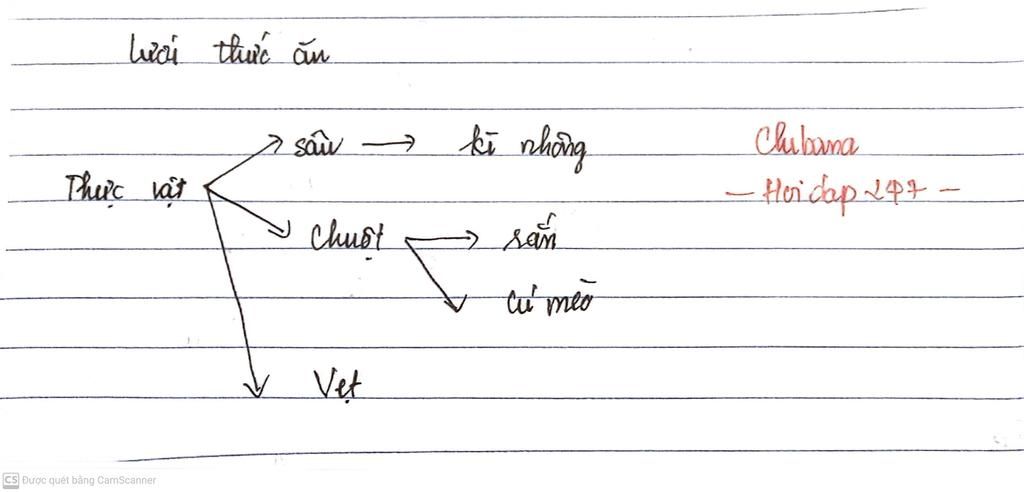 Lưới thức ăn
sâu → kì nhông
Thực vật
Chuột → rắn
cú mèo
Vẹt
Chubana
- Hoidap247 -
CS Được quét bằng CamScanner